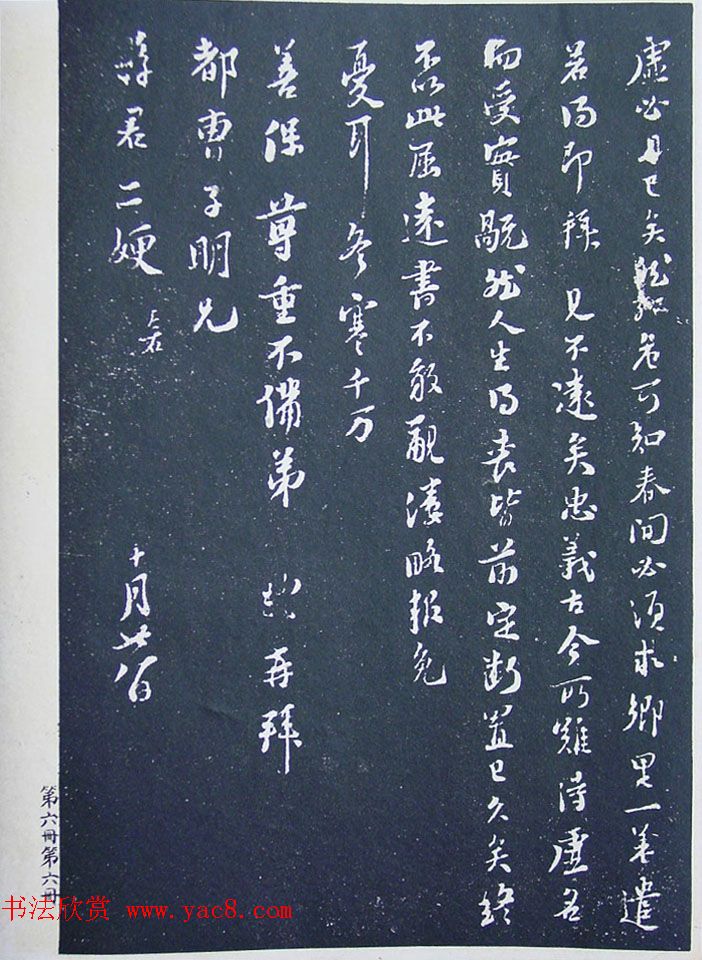 虚必且已矣艱危可知春間必須求鄉里一差遣
若得即拜見不遠矣忠義古今所難得虛名
而受實既然人生得喪皆前定斷置已久矣終
不以此屈遠書不敢觀縷略報免
憂耳冬寒千万
善保尊重不備弟 再拜
都曹子明兄
君二嫂
十月廿
第六冊第六冊
书法欣赏 www.yac8.com